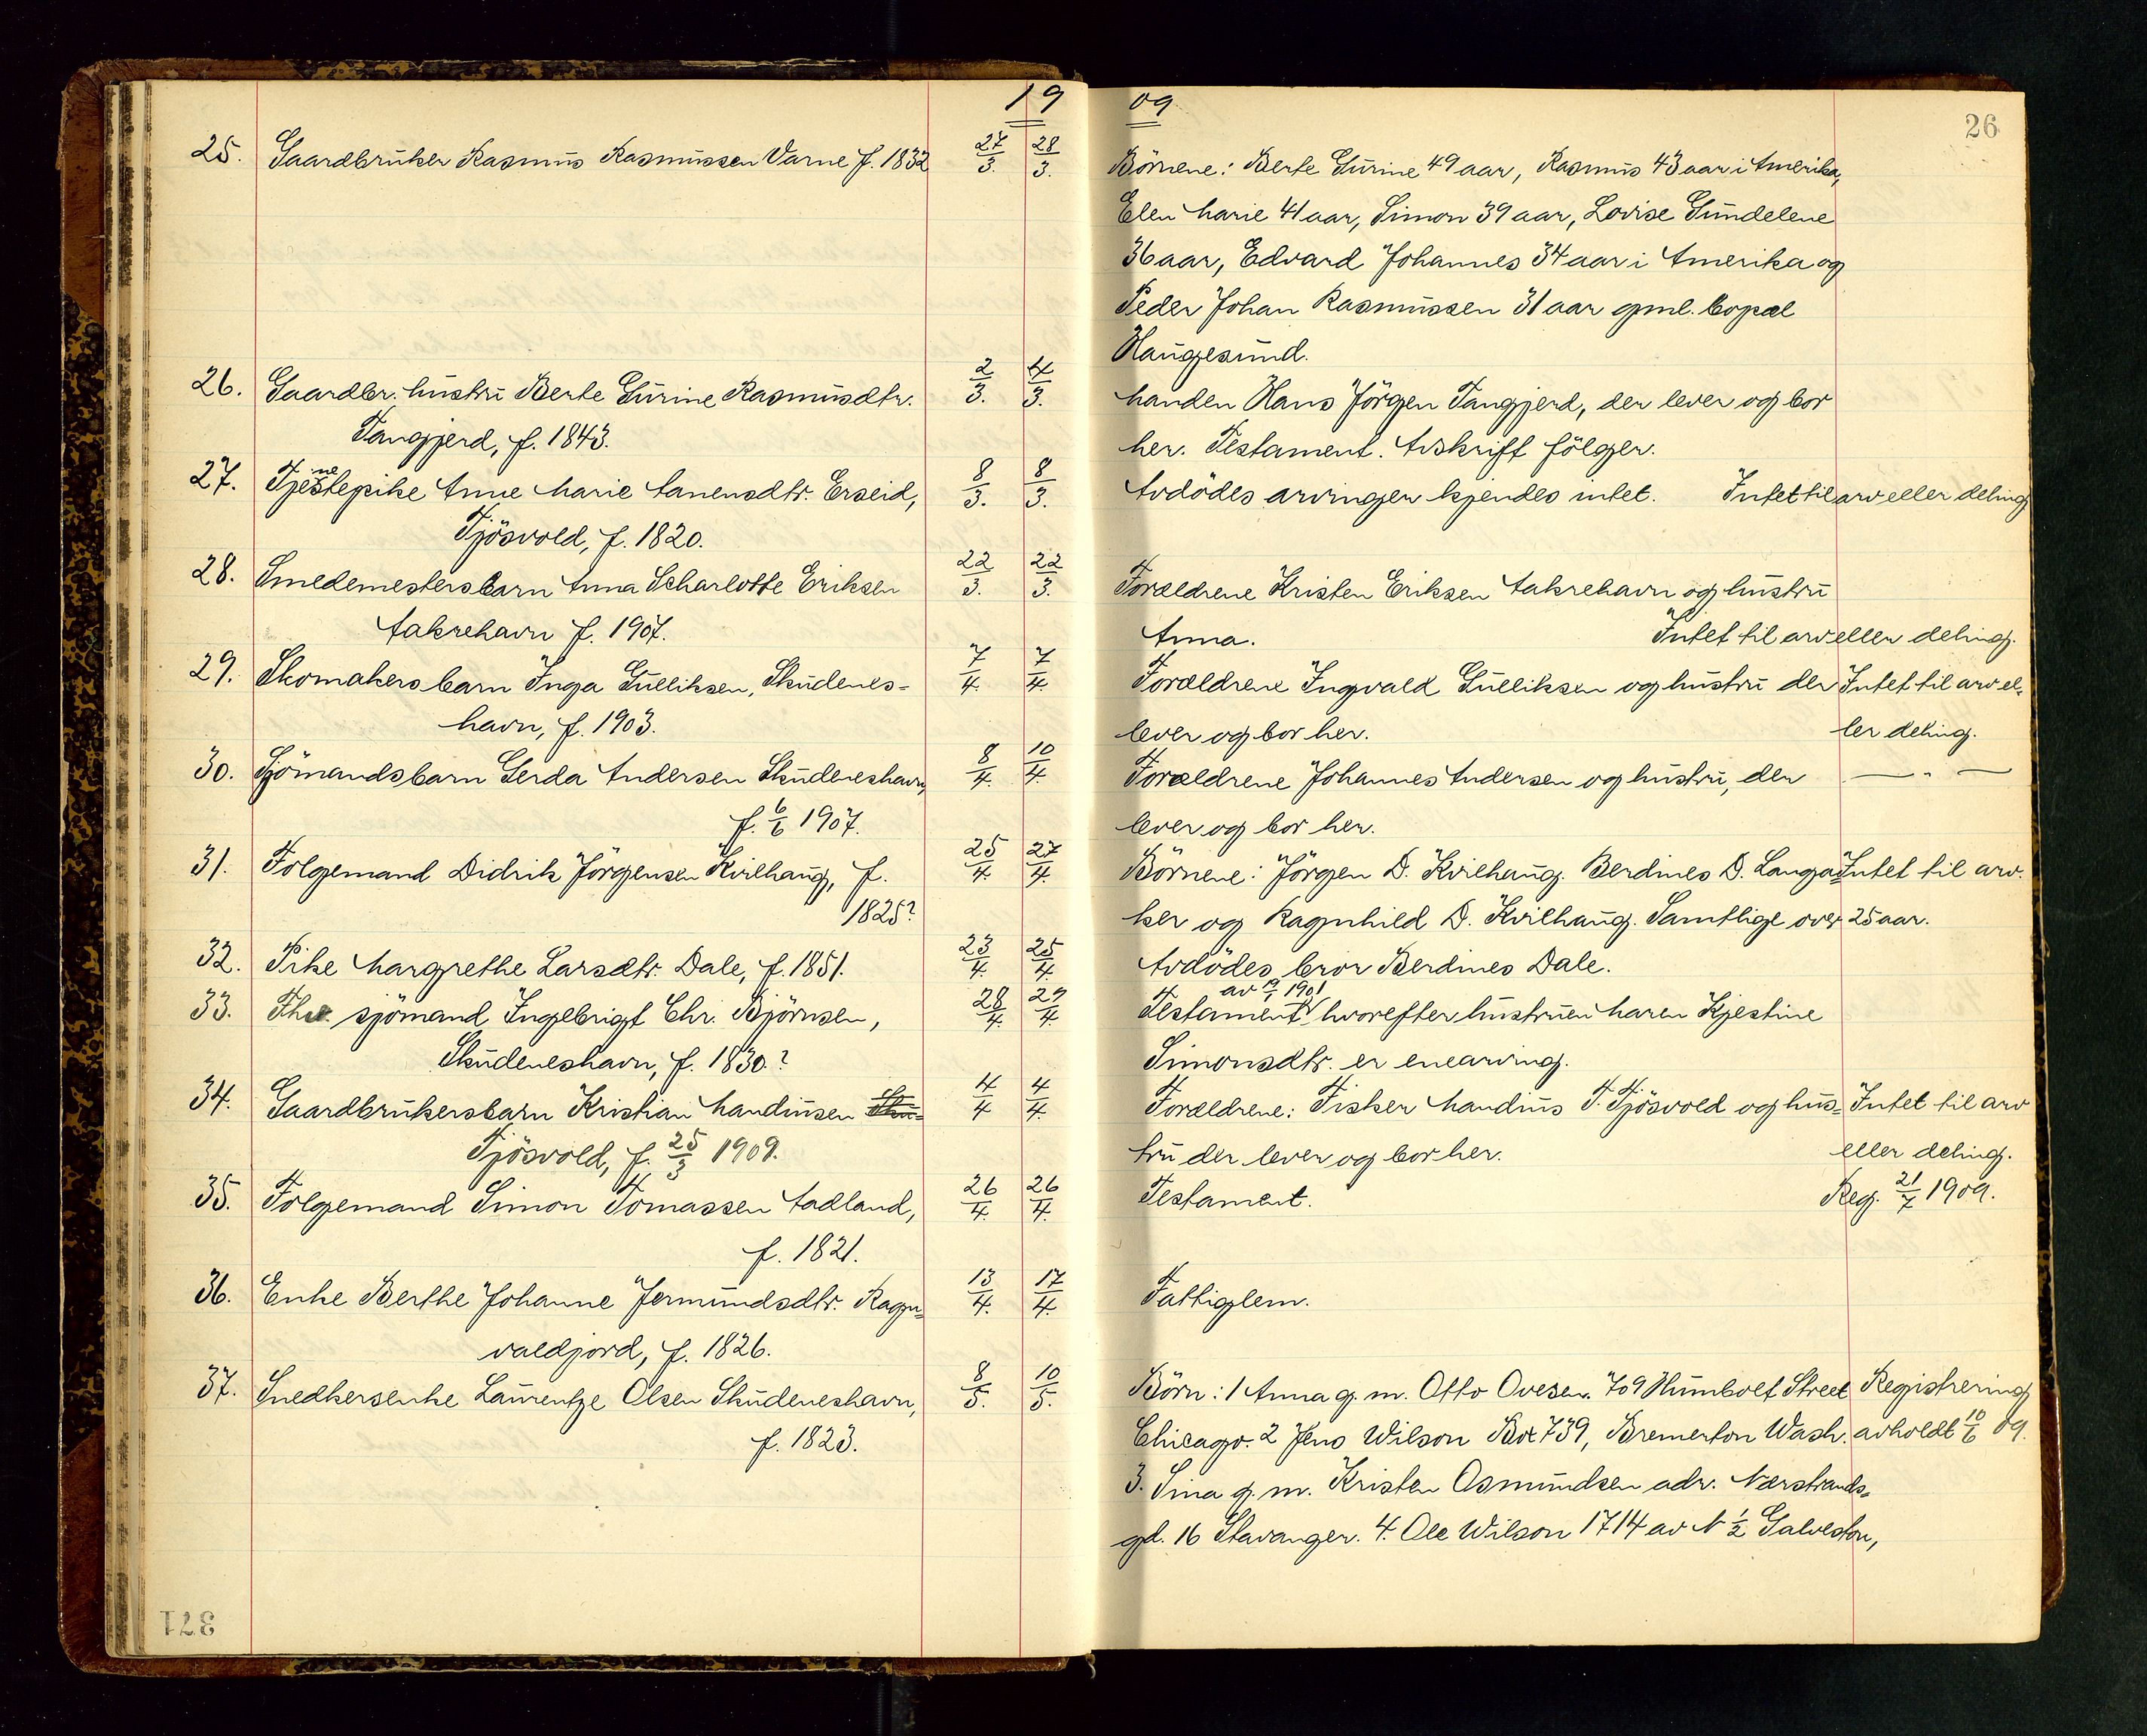 19 09
26
25. Gaardbruker Rasmus Rasmussen Varne f. 1832 27/3. 28/3. Börnene: Berte Gurine 49 aar, Rasmus 43 aar i Amerika,
Elen Marie 41 aar, Simon 39 aar, Lovise Gundelene
36 aar, Edvard Johannes 34 aar i Amerika og
Peder Johan Rasmussen 31 aar gml. Copæl
Haugesund.
26. Gaardbr. hustru Berte Gurine Rasmusdtr. 2/3. 4/3. Manden Hans Jörgen Tangjerd, der lever og bor
Tangjerd, f. 1843. her. Testament. Avskrift fölger.
27. Tjenestepike Anne Marie Aanensdtr. Erseid, 8/3. 8/3. Avdödes arvinger kjendes intet. Intet til arv eller deling
Tjösvold, f. 1820.
28. Smedemestersbarn Anna Scharlotte Eriksen 22/3. 22/3. Forældrene Kristen Eriksen Aakrehavn og hustru
Aakrehavn f. 1907. Anna. Intet til arv eller deling.
29. Skomakersbarn Inga Gulliksen, Skudenes- 7/4. 7/4. Forældrene Ingvald Gulliksen og hustru der Intet til arv el-
havn, f. 1903. lever og bor her. ler deling.
30. Sjömandsbarn Gerda Andersen Skudeneshavn, 8/4. 10/4. Forældrene Johannes Andersen og hustru, der — " —
f. 6/6 1907. lever og bor her.
31. Folgemand Didrik Jörgensen Kvilhaug, f. 25/4. 27/4. Börnene: Jörgen D. Kvilhaug. Berdines D. Langaa- Intet til arv.
1825? ker og Ragnhild D. Kvilhaug. Samtlige over 25 aar.
32. Pike Margrethe Larsdtr. Dale, f. 1851. 23/4. 25/4. Avdödes bror Berdines Dale.
33. Fhv. sjömand Ingebrigt Chr. Björnsen, 28/4. 29/4. Testament av 19/1 1901 hvorefter hustruen Maren Kjestine
Skudeneshavn, f. 1830.? Simonsdtr. er enearving.
34. Gaardbrukersbarn Kristian Mandiusen Sku- 4/4 4/4. Forældrene: Fisker Mandius T. Tjösvold og hus- Intet til arv
Tjösvold, f. 25/3 1909. tru der lever og bor her. eller deling.
35. Folgemand Simon Tomassen Aadland, 26/4. 26/4. Testament. Reg. 21/7 1909.
f. 1821.
36. Enke Berthe Johanne Jermundsdtr. Ragn- 13/4. 17/4. Fattiglem.
valdjord, f. 1826.
37. Snedkersenke Laurentze Olsen Skudeneshavn, 8/5. 10/5. Börn: 1 Anna g. m. Otto Ovesen. 709 Humbolt Street Registrering
f. 1823. Chicago. 2 Jens Wilson Box 739, Bremerton Wash. avholdt 10/6 09.
3. Sina g. m. Kristen Osmundsen adr. Nærstrands-
gd. 16 Stavanger. 4. Ole Wilson 1714 av N 1/2 Galveston,
371